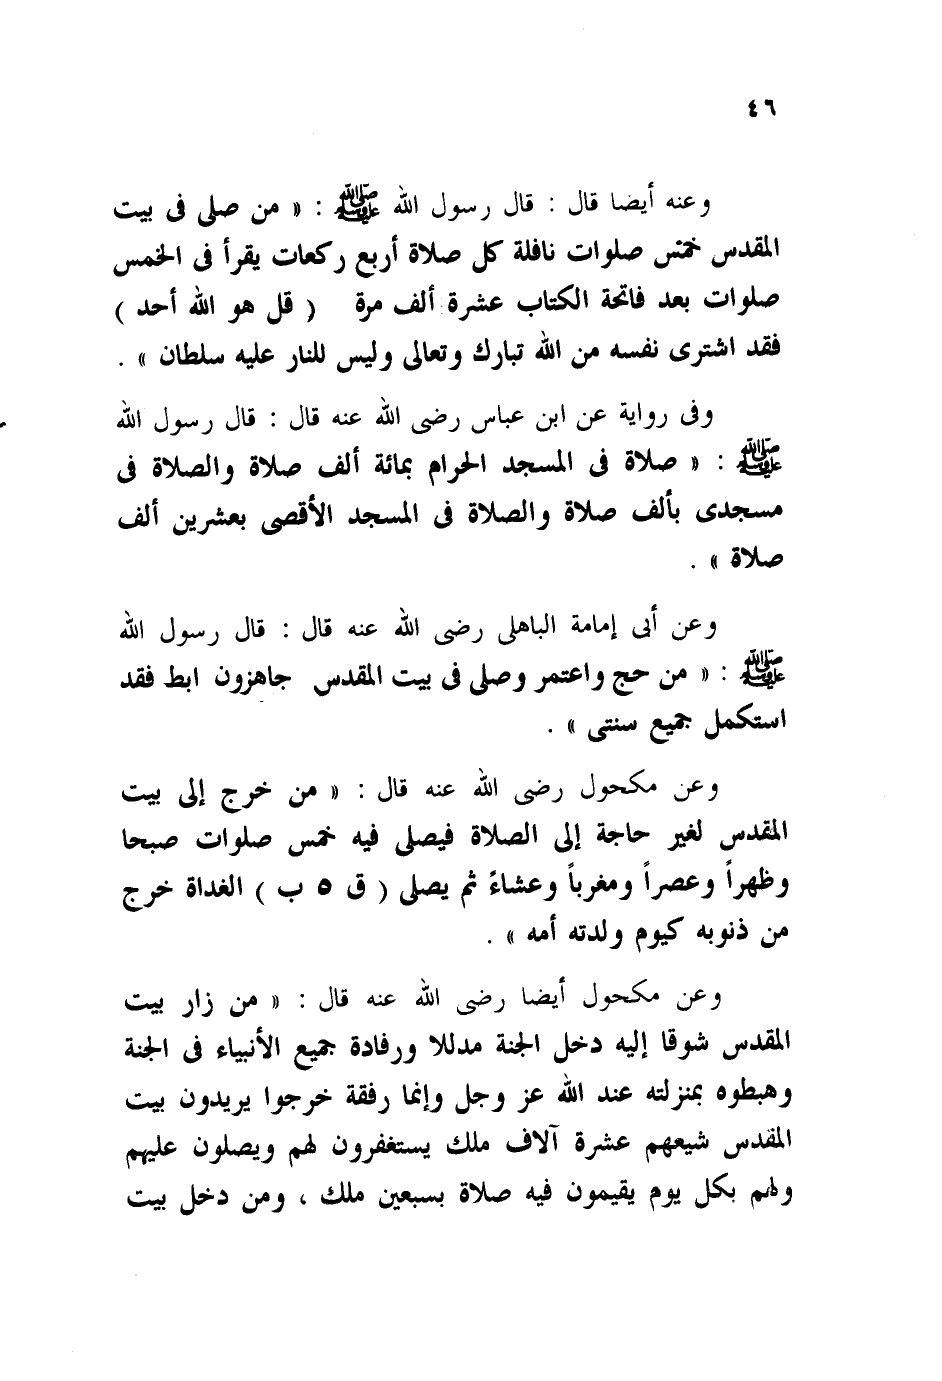 ٤٦
وعنه أيضا قال : قال رسول الله ﷺ : « من صلى فى بيت
المقدس خمس صلوات نافلة كل صلاة أربع ركعات يقرأ فى الخمس
صلوات بعد فاتحة الكتاب عشرة ألف مرة ( قل هو الله أحد )
فقد اشترى نفسه من الله تبارك وتعالى وليس للنار عليه سلطان » .
وفى رواية عن ابن عباس رضى الله عنه قال : قال رسول الله
ﷺ : « صلاة فى المسجد الحرام بمائة ألف صلاة والصلاة فى
مسجدى بألف صلاة والصلاة فى المسجد الأقصى بعشرين ألف
صلاة » .
وعن أبى إمامة الباهلى رضى الله عنه قال : قال رسول الله
ﷺ : « من حج واعتمر وصلى فى بيت المقدس جاهزون ابط فقد
استكمل جميع سنتى » .
وعن مكحول رضى الله عنه قال : « من خرج إلى بيت
المقدس لغير حاجة إلى الصلاة فيصلى فيه خمس صلوات صبحا
وظهراً وعصراً ومغرباً وعشاءً ثم يصلى ( ق ٥ ب ) الغداة خرج
من ذنوبه كيوم ولدته أمه » .
وعن مكحول أيضا رضى الله عنه قال : « من زار بيت
المقدس شوقا إليه دخل الجنة مدللا ورفادة جميع الأنبياء فى الجنة
وهبطوه بمنزلته عند الله عز وجل وإنما رفقة خرجوا يريدون بيت
المقدس شيعهم عشرة آلاف ملك يستغفرون لهم ويصلون عليهم
ولهم بكل يوم يقيمون فيه صلاة بسبعين ملك ، ومن دخل بيت